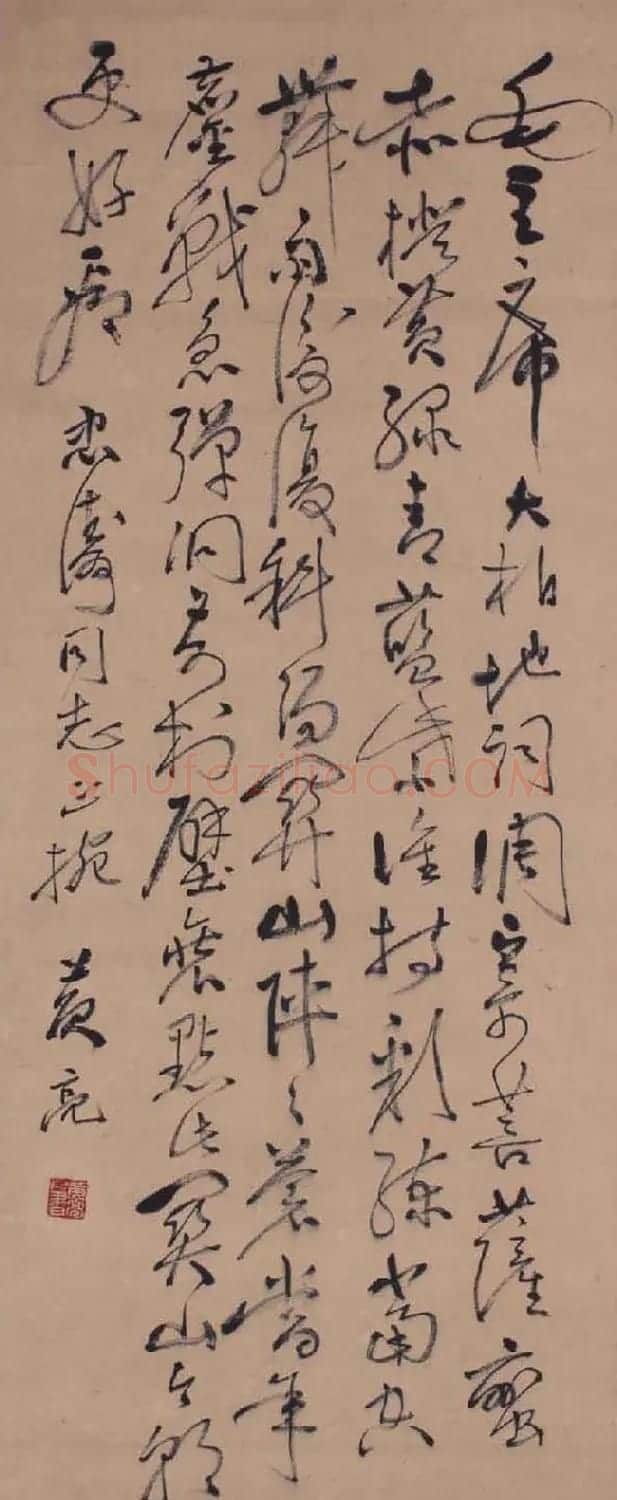 毛主席大柏地詞調寄菩薩蠻
赤橙黄綠青藍紫誰持彩練當空
舞雨後復斜陽關山陣々蒼當年
鏖戰急彈洞前村壁裝點此關山今朝
更好看 忠濤同志正腕 黄亮
Shufaziliao.COM